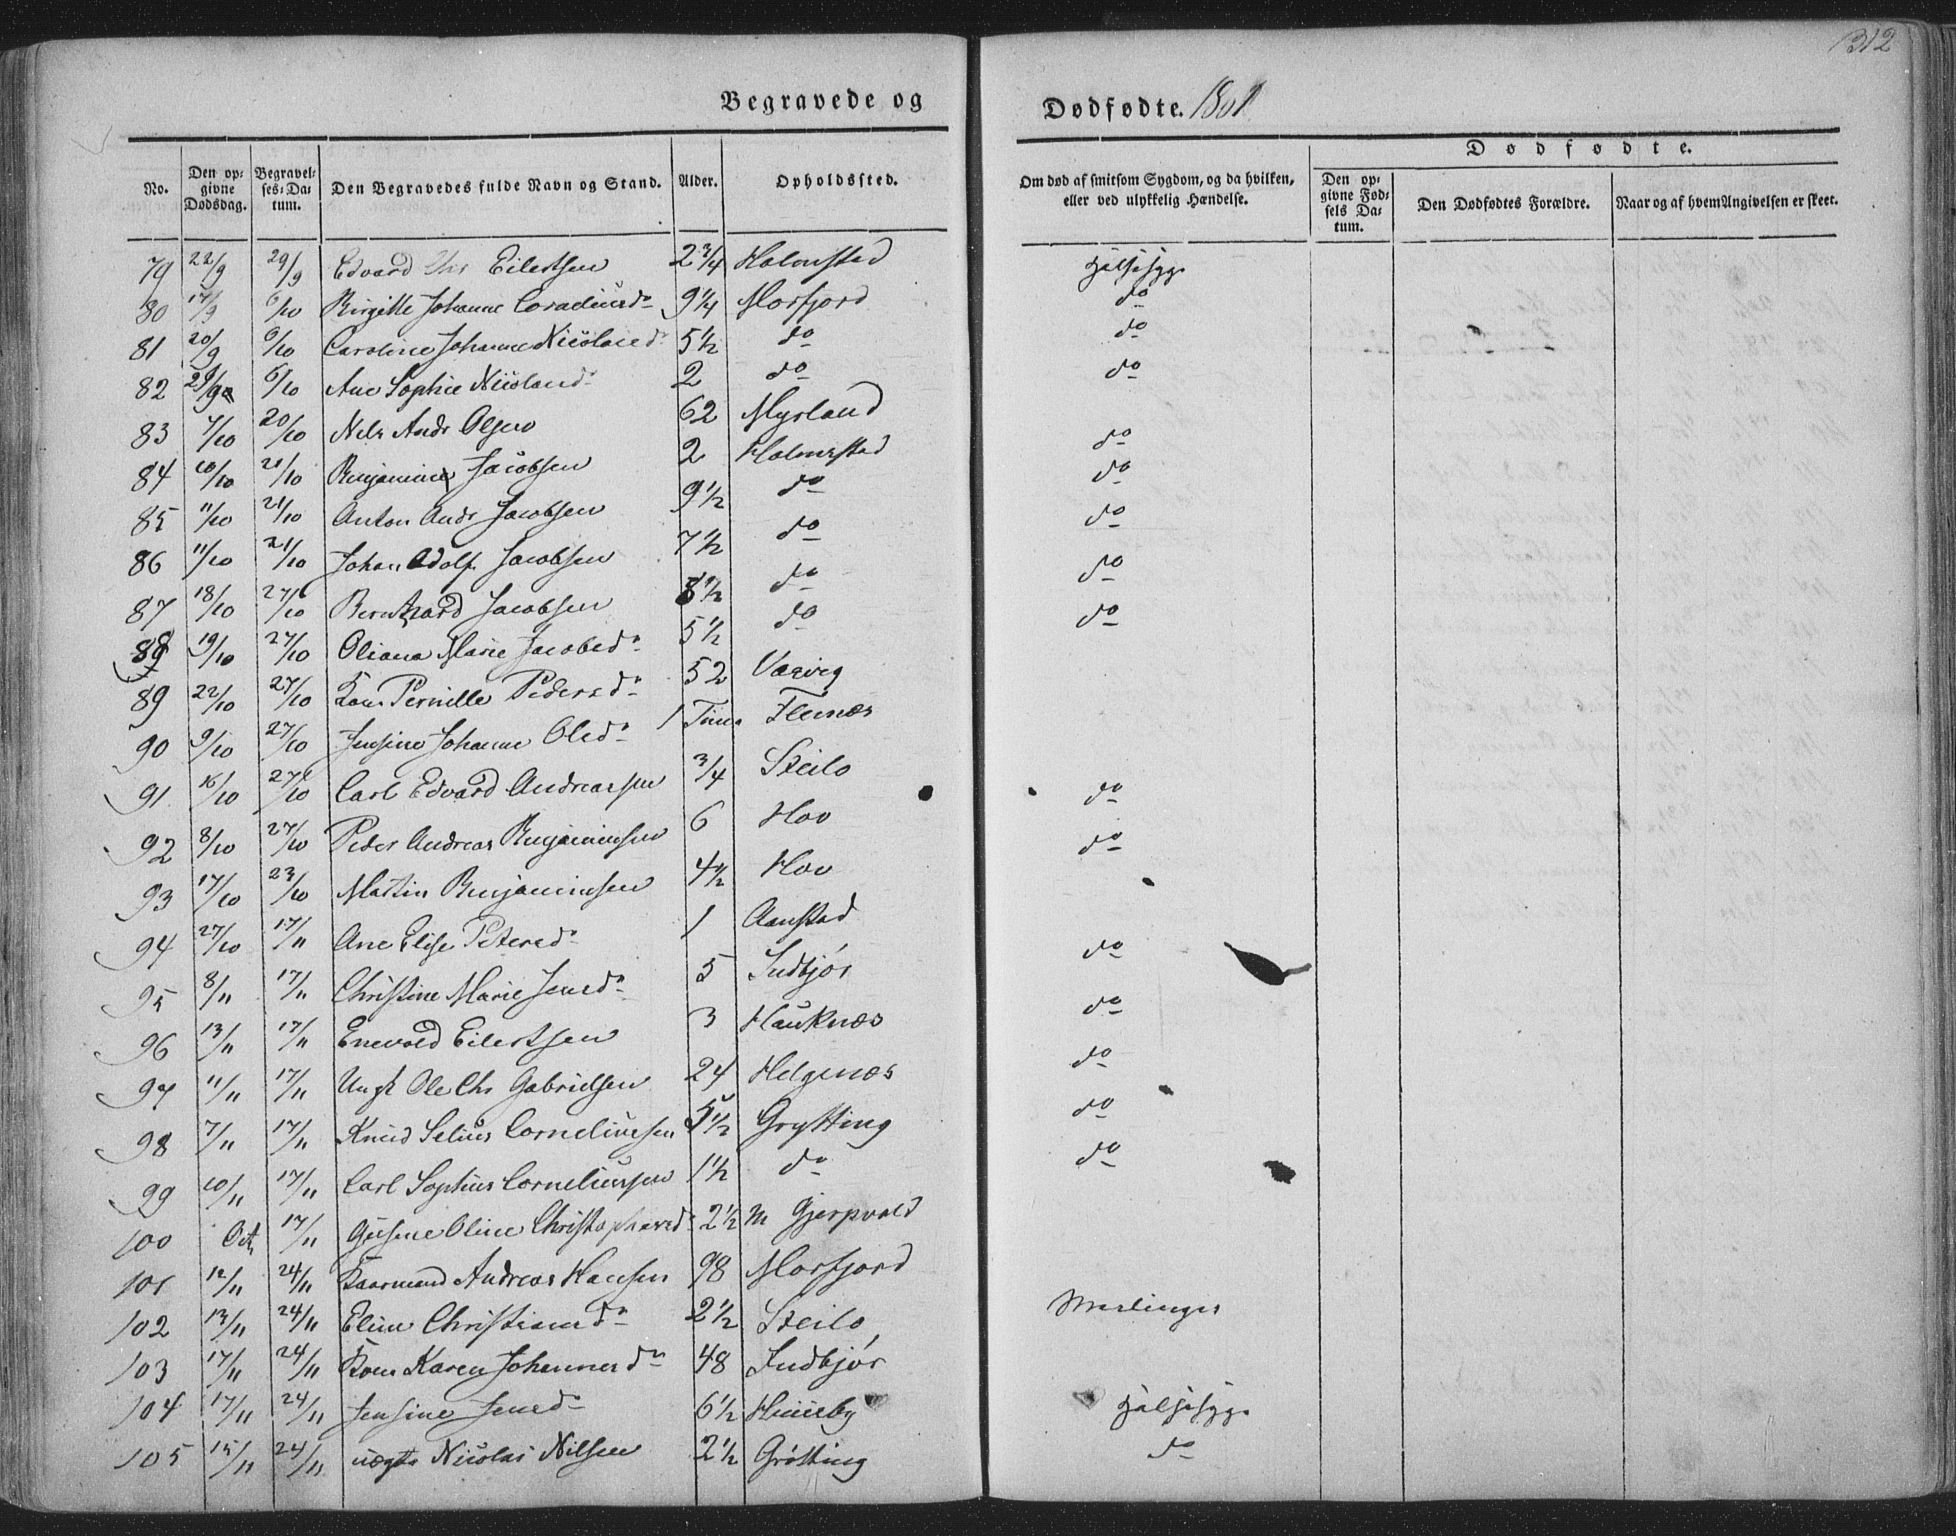 312
Begravede og Dødfødte. 1861
Dødfødte.
No. Den opgivne Dødsdag. Begravelses-Datum. Den Begravedes fulde Navn og Stand. Alder. Opholdssted. Om død af smitsom Sygdom, og da hvilken, eller ved ulykkelig Hændelse. Den opgivne Fødsels Datum. Den Dødfødtes Forældre. Naar og af hvem Angivelsen er skeet.
79 22/9 29/9 Edvard Chr Eilertsen 2 3/4 Holmstad Halssyge
80 17/9 6/10 Birgitte Johanne 9 1/4 Morfjord do
81 20/9 6/10 Caroline Johanne Nicolaid. 5 1/2 do do
82 29/9 6/10 Ane Sophie 2 do do
83 7/10 20/10 Nels Andr Olsen 62 Myrland
84 10/10 21/10 Jacobsen 2 Holmstad do
85 11/10 21/10 Anton Andr Jacobsen 9 1/2 do do
86 11/10 21/10 Johan Adolf Jacobsen 7 1/2 do do
87 18/10 27/10 Bernhard Jacobsen 8 1/2 do do
88 19/10 27/10 Oliana Marie Jacobsd. 5 1/2 do do
89 22/10 27/10 Kone Pernille Pedersd. 52
90 9/10 27/10 Jensine Johanne Olsd. 1 Time Flesnæs
91 16/10 27/10 Carl Edvard Andreassen 3/4 Steilo
92 8/10 27/10 Peder Andreas Benjaminsen 6 Hov do
93 17/10 23/10 Martin Benjaminsen 4 1/2 Hov do
94 27/10 17/11 Ane Elise Petersd. 1 Aanstad
95 8/11 17/11 Christine Marie Jensd. 5 Indbjør do
96 13/11 17/11 Enevold Eilertsen 3 Hauknæs do
97 11/11 17/11 Ungk Ole Chr Gabrielsen 24 Helgenæs do
98 7/11 17/11 Knud Selius Corneliussen 5 1/2 Grytting do
99 10/11 17/11 Carl Sophus Corneliussen 1 1/2 do do
100 Oct. 17/11 Oline Christophersd. 2 1/2
101 12/11 24/11 Kaarmand Andreas Hansen 98 Morfjord
102 13/11 24/11 Eline Christiansd. 2 1/2 Steilo Mæslinger
103 17/11 24/11 Kone Karen Johannesd. 48 Indbjør
104 17/11 24/11 Jensine Jensd. 6 1/2 Huusby Halssyge
105 15/11 24/11 uægte Nicolai Nilsen 2 1/2 Grøtting do